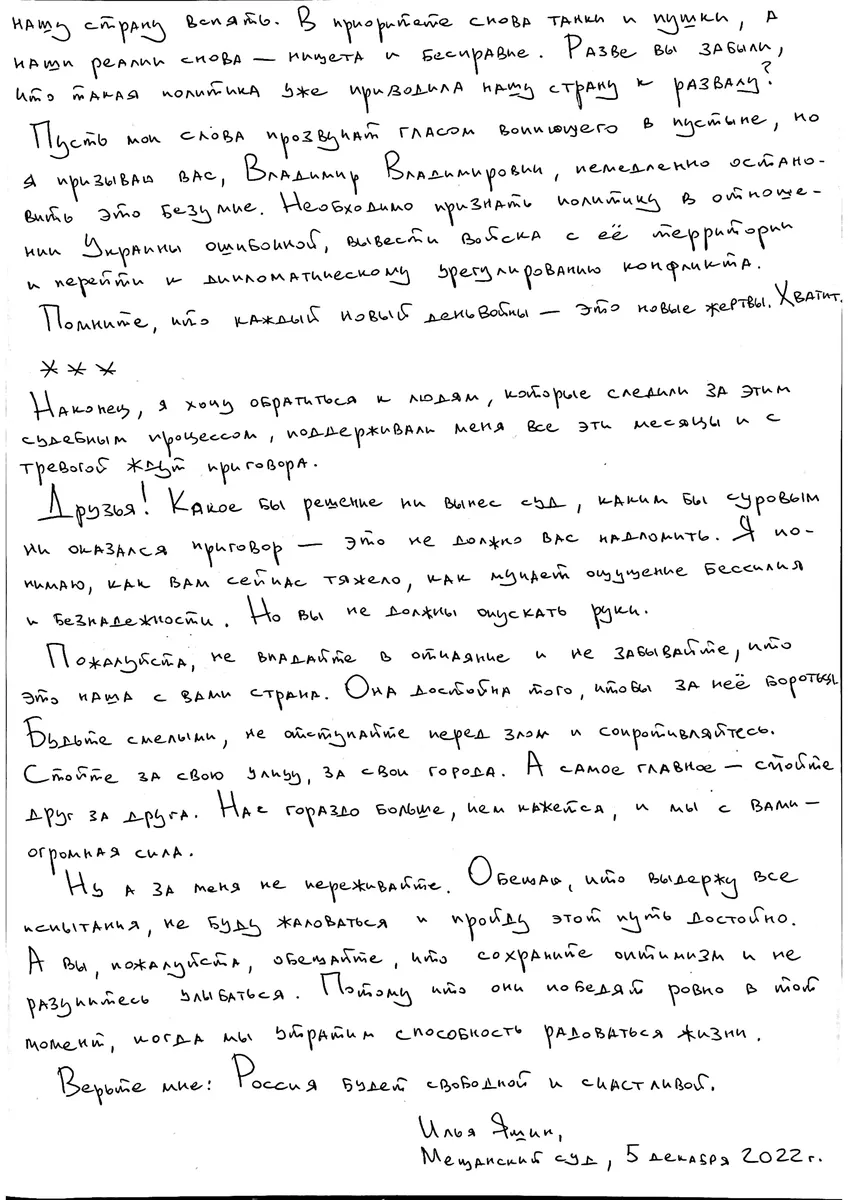 нашу страну вспять. В приоритете снова танки и пушки, а
наши реалии снова — нищета и бесправие. Разве вы забыли,
что такая политика уже приводила нашу страну к развалу?
Пусть мои слова прозвучат гласом вопиющего в пустыне, но
я призываю вас, Владимир Владимирович, немедленно остано-
вить это безумие. Необходимо признать политику в отноше-
нии Украины ошибочной, вывести войска с её территории
и перейти к дипломатическому урегулированию конфликта.
Помните, что каждый новый день войны — это новые жертвы. Хватит.
***
Наконец, я хочу обратиться к людям, которые следили за этим
судебным процессом, поддерживали меня все эти месяцы и с
тревогой ждут приговора.
Друзья! Какое бы решение ни вынес суд, каким бы суровым
ни оказался приговор — это не должно вас надломить. Я по-
нимаю, как вам сейчас тяжело, как мучает ощущение бессилия
и безнадежности. Но вы не должны опускать руки.
Пожалуйста, не впадайте в отчаяние и не забывайте, что
это наша с вами страна. Она достойна того, чтобы за неё бороться.
Будьте смелыми, не отступайте перед злом и сопротивляйтесь.
Стойте за свою улицу, за свои города. А самое главное — стойте
друг за друга. Нас гораздо больше, чем кажется, и мы с вами —
огромная сила.
Ну а за меня не переживайте. Обещаю, что выдержу все
испытания, не буду жаловаться и пройду этот путь достойно.
А вы, пожалуйста, обещайте, что сохраните оптимизм и не
разучитесь улыбаться. Потому что они победят ровно в той
момент, когда мы утратим способность радоваться жизни.
Верьте мне: Россия будет свободной и счастливой.
Илья Яшин,
Мещанский суд, 5 декабря 2022 г.